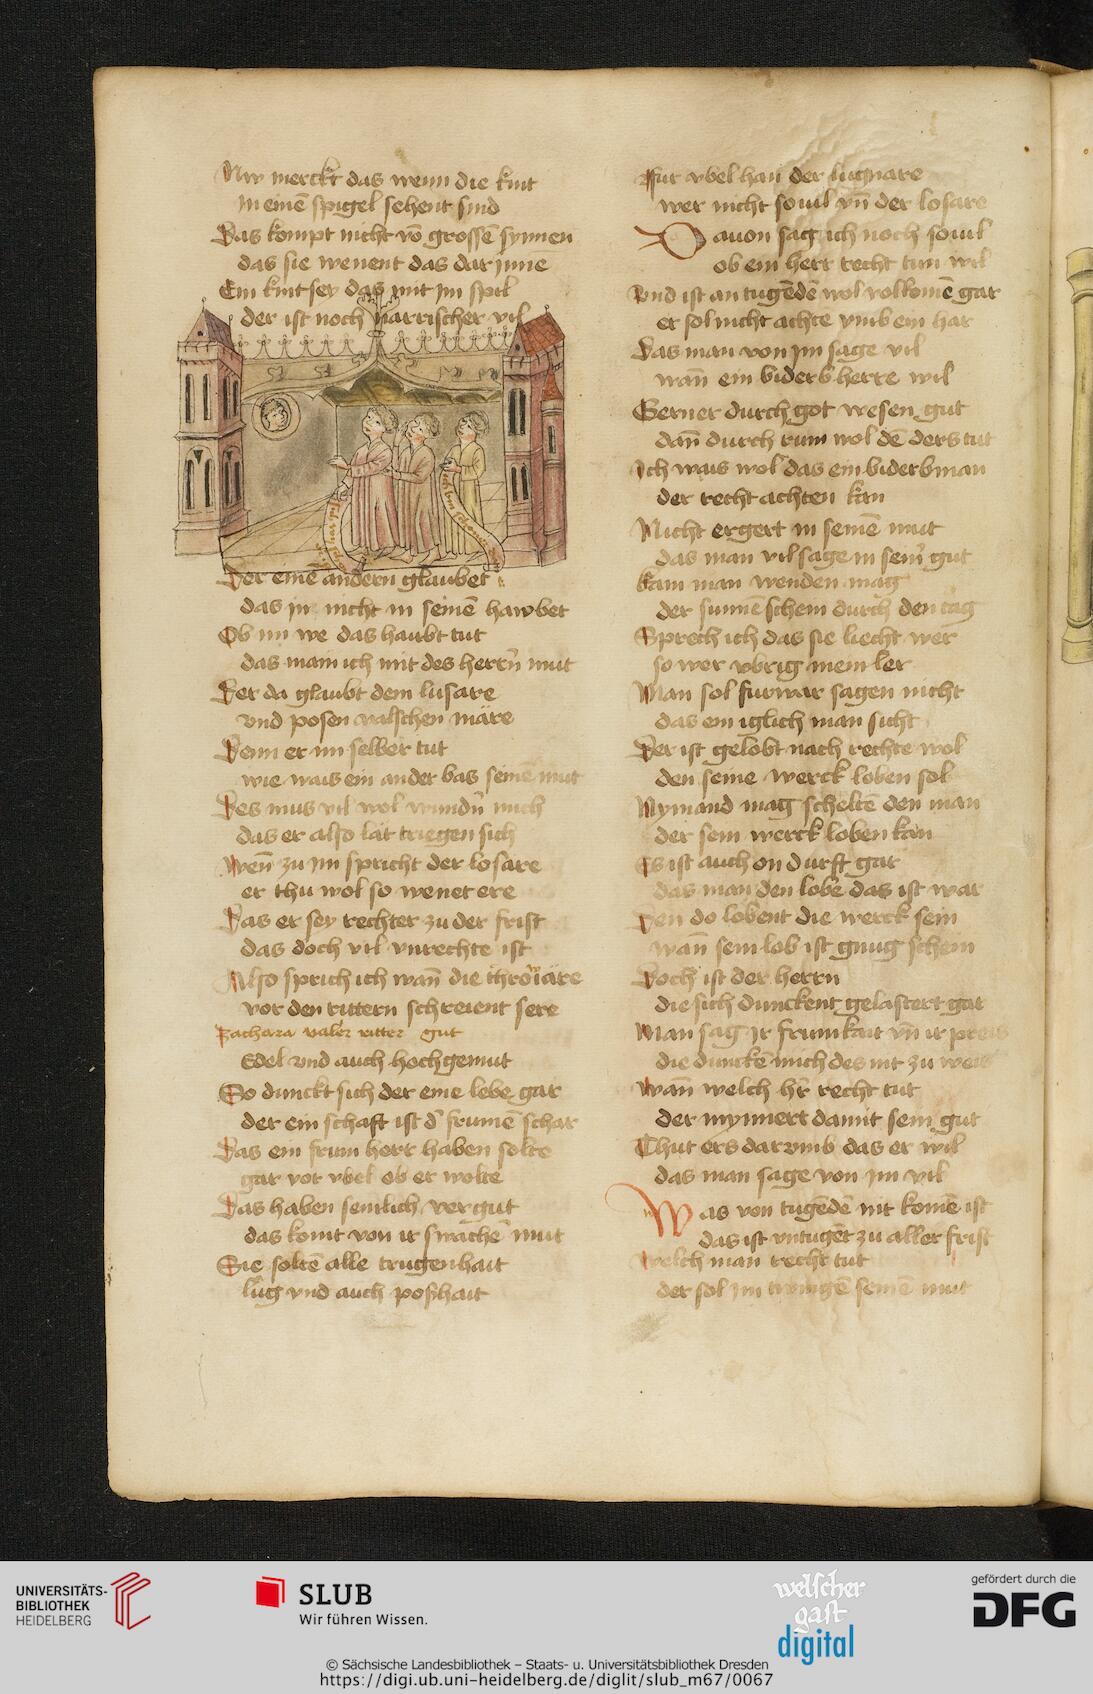 Nw merckt das wenn die kint
in einē spigel sehent sind
Das kompt nicht vō grossē synnen
das sie wenent das dar jnne
Ein kint sey das mit jm spil
der ist noch narrischer vil
Der einē andern glaubet
das jn nicht in seinē hawbet
Ob im we das haubt tut
das main ich mit des herrn̄ mut
Der da glaubt dem lusare
vnd posen valschen märe
Denn er im selber tut
wie wais ein ander bas seinē mut
Des mus vil wol wundn̄ mich
das er also lat triegen sich
Wen̄ zu jm spricht der losare
er thu wol so wenet ere
Das er sey rechter zu der frist
das doch vil vnrechte ist
Also sprich ich wan̄ die
vor den rittern schreient sere
Zachara valer ritter gut
Edel vnd auch hochgemut
So dunckt sich der eine lebe gar
der ein schaft ist d' frumē schar
Das ein frum herr haben solte
gar vor vbel ob er wolte
Das haben semlich ver gut
das komt von ir swachē mut
Sie soltē alle trugenhait
lug vnd auch poshait
Fur vbel han der lugnare
wer nicht souil vn̄ der losare
Dauon sag ich noch souil
ob ein herr recht tun wil
Vnd ist an tugēdē wol volkomē gar
er sol nicht achte vmb ein har
Das man von jm sage vil
wan̄ ein biderb herre wil
Gerner durch got wesen gut
dan̄ durch rum wol dē ders tut
Ich wais wol das ein biderbman
der recht achten kan
Nicht ergert in seinē mut
das man vil sage in sein' gut
kam man wenden mag
der sunnē schein durch den tag
Sprech ich das sie liecht wer
so wer vbrig mein ler
Man sol furwar sagen nicht
das ein iglich man sicht
Der ist gelobt nach rechte wol
den seine werck loben sol
Nymand mag scheltē den man
der sein werck loben kan
Es ist auch on durft gar
das man den lobe das ist war
Den do lobent die werck sein
wan̄ sein lob ist gnug schein
Doch ist der herrn
die sich dunckent gelastert gar
Man sag Ir frumkait vn̄ ir preis
die dunckē mich des nit zu weis
Wan̄ welch hr̄ recht tut
der mynnert damit sein gut
Thut ers darvmb das er wil
das man sage von jm vil
Was von tugēdē nit komē ist
das ist vntugēt zu aller frist
Welch man recht tut
der sol jm twingē seinē mut
UNIVERSITÄTS-
BIBLIOTHEK
HEIDELBERG
SLUB
Wir führen Wissen.
welscher
gast
digital
gefördert durch die
DFG
© Sächsische Landesbibliothek – Staats- u. Universitätsbibliothek Dresden
https://digi.ub.uni-heidelberg.de/diglit/slub_m67/0067